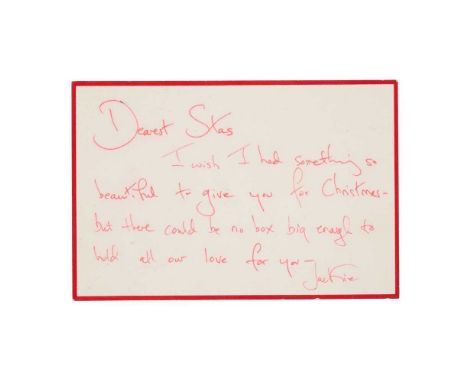 Dearest Stas
I wish I had something so
beautiful to give you for Christmas–
but there could be no box big enough to
hold all our love for you–
Jackie